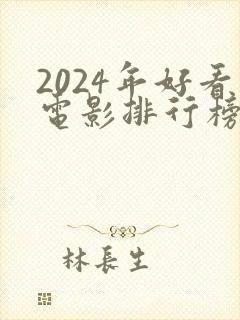 2024年好看
电影排行榜
林長生